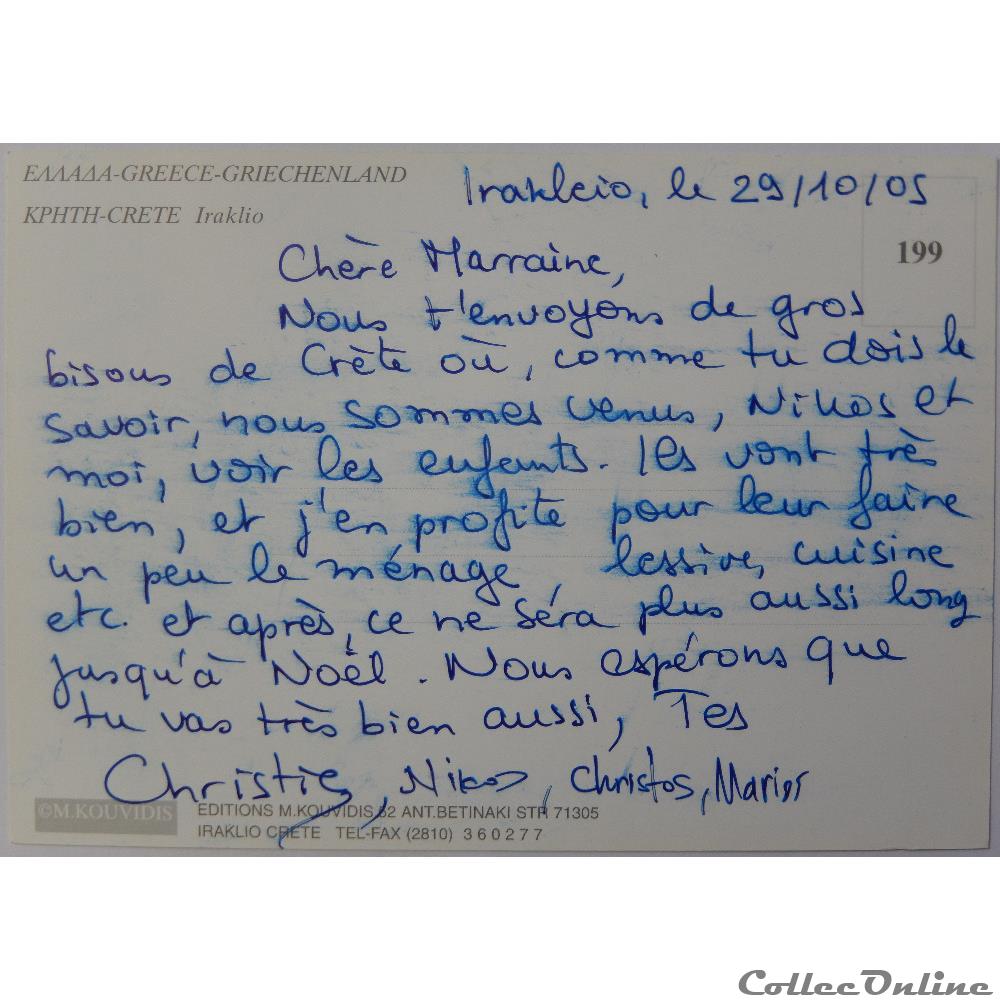 ΕΛΛΑΔΑ-GREECE-GRIECHENLAND
ΚΡΗΤΗ-CRETE Iraklio
Irakleio, le 29/10/05
199
Chère Marraine,
Nous t'envoyons de gros
bisous de Crète où, comme tu dois le
savoir, nous sommes venus, Nikos et
moi, voir les enfants. Ils vont très
bien, et j'en profite pour leur faire
un peu le ménage, lessive, cuisine
etc. et après, ce ne séra plus aussi long
jusqu'à Noël. Nous espérons que
tu vas très bien aussi, Tes
Christie, Nikos, Christos, Marios
©M.KOUVIDIS
EDITIONS M.KOUVIDIS 52 ANT.BETINAKI STR 71305
IRAKLIO CRETE TEL-FAX (2810) 360277
CollecOnline